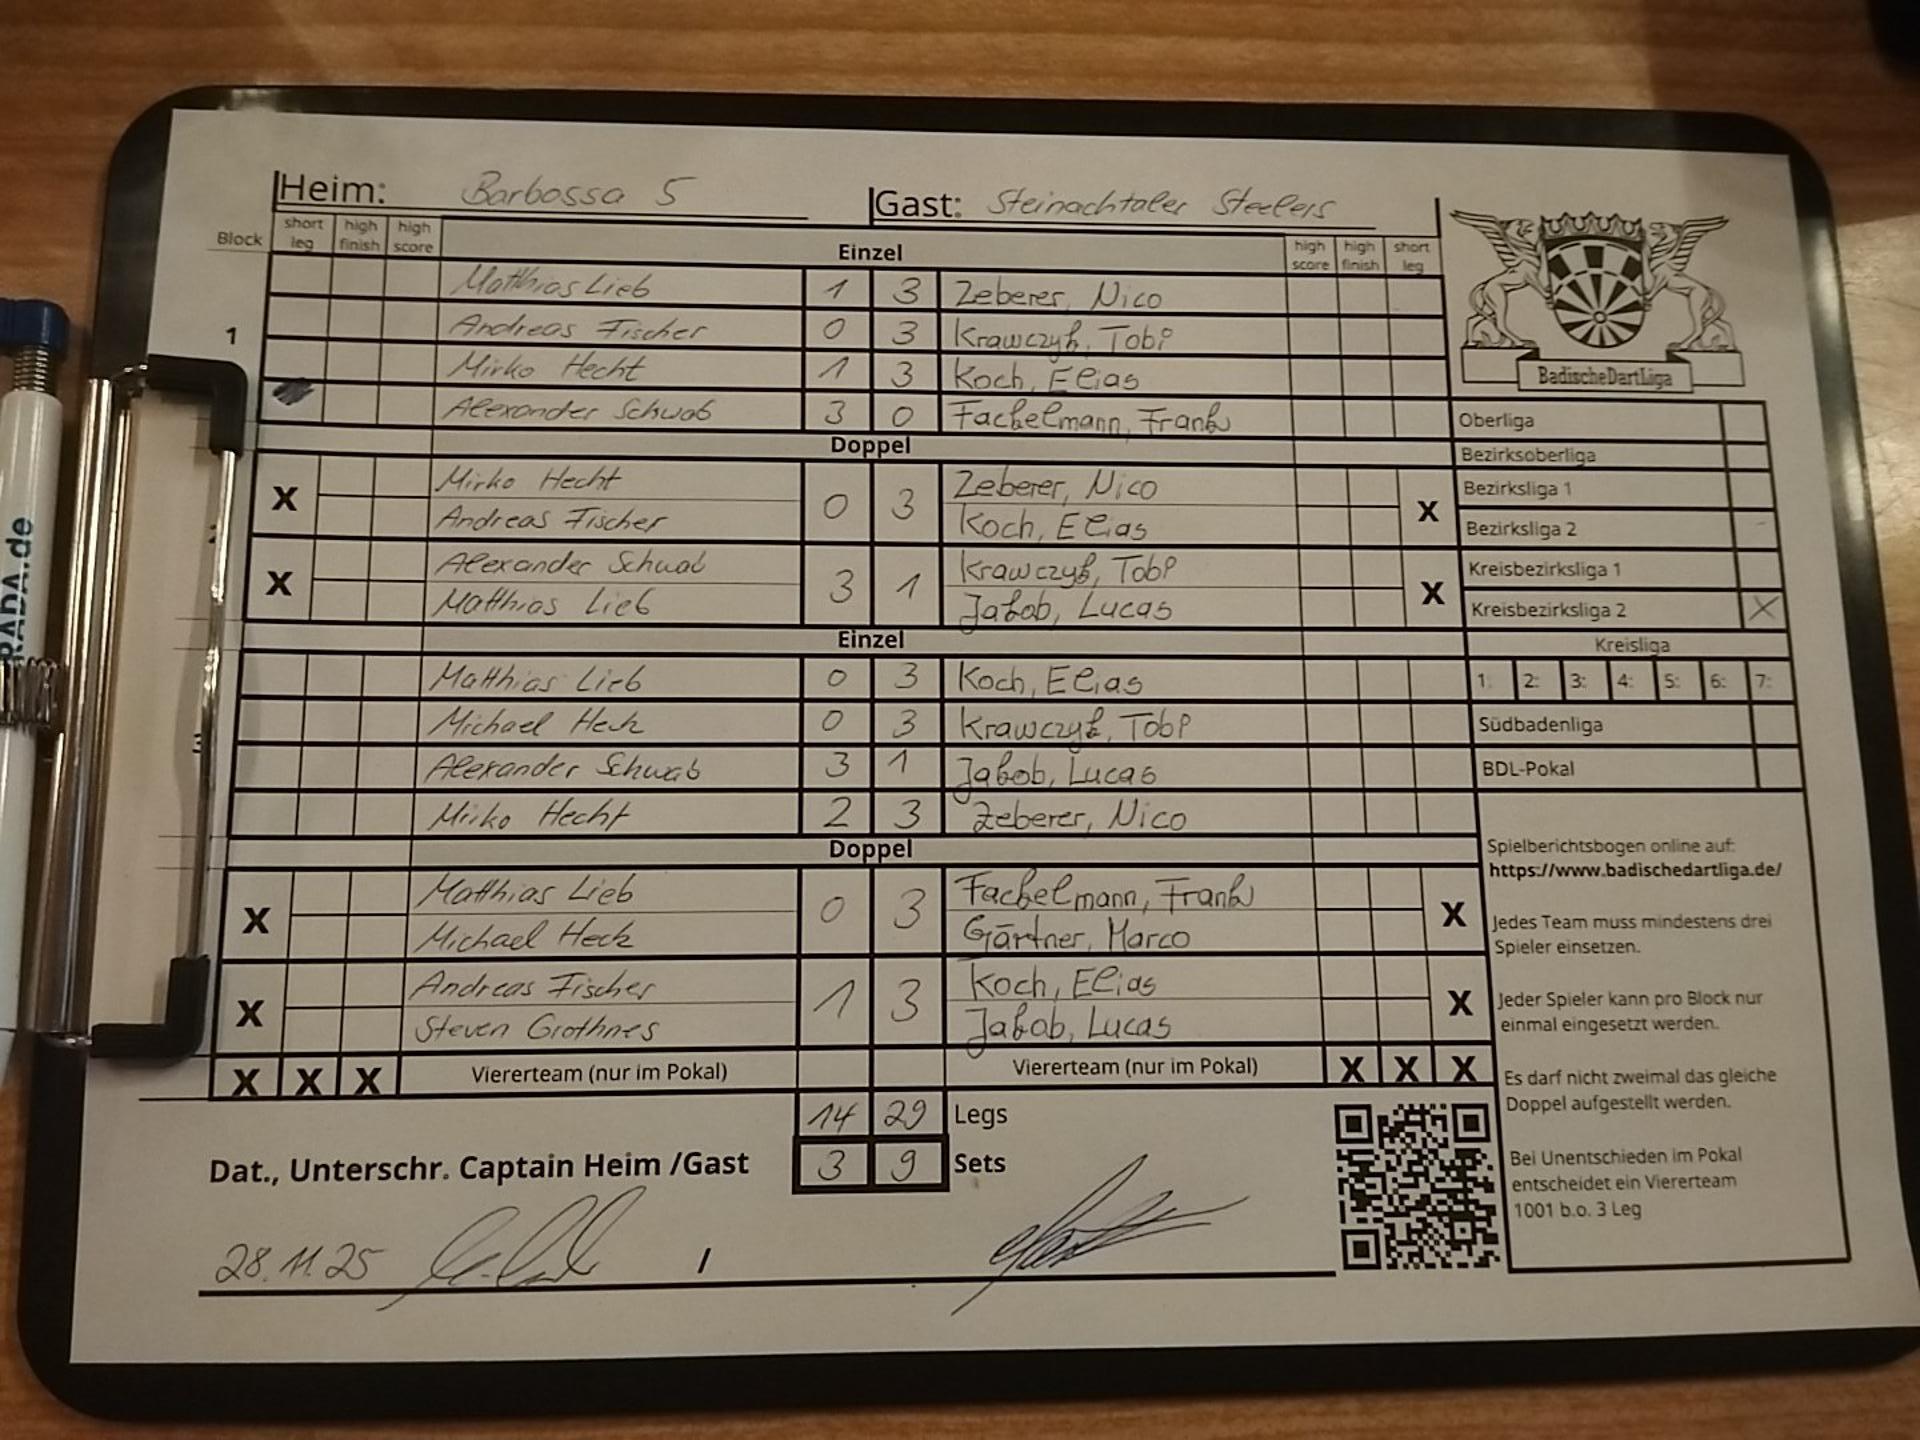 Heim: Barbossa 5 Gast: Steinachtaler Steelers
Block short leg high finish high score Einzel high score high finish short leg
Matthias Lieb 1 3 Zeberer, Nico
1 Andreas Fischer 0 3 Krawczyk, Tobi
Mirko Hecht 1 3 Koch, Elias
Alexander Schwab 3 0 Fackelmann, Frank
Doppel
X Mirko Hecht 0 3 Zeberer, Nico X
Andreas Fischer Koch, Elias
X Alexander Schwab 3 1 Krawczyk, Tobi X
Matthias Lieb Jakob, Lucas
Einzel
Matthias Lieb 0 3 Koch, Elias
Michael Heck 0 3 Krawczyk, Tobi
Alexander Schwab 3 1 Jakob, Lucas
Mirko Hecht 2 3 Zeberer, Nico
Doppel
X Matthias Lieb 0 3 Fackelmann, Frank X
Michael Heck Gärtner, Marco
X Andreas Fischer 1 3 Koch, Elias X
Steven Grothnes Jakob, Lucas
X X X Viererteam (nur im Pokal) Viererteam (nur im Pokal) X X X
14 29 Legs
Dat., Unterschr. Captain Heim /Gast 3 9 Sets
28.11.25 /
BadischeDartLiga
Oberliga
Bezirksoberliga
Bezirksliga 1
Bezirksliga 2
Kreisbezirksliga 1
Kreisbezirksliga 2 X
Kreisliga
1: 2: 3: 4: 5: 6: 7:
Südbadenliga
BDL-Pokal
Spielberichtsbogen online auf:
https://www.badischedartliga.de/
Jedes Team muss mindestens drei
Spieler einsetzen.
Jeder Spieler kann pro Block nur
einmal eingesetzt werden.
Es darf nicht zweimal das gleiche
Doppel aufgestellt werden.
Bei Unentschieden im Pokal
entscheidet ein Viererteam
1001 b.o. 3 Leg
RADA.de